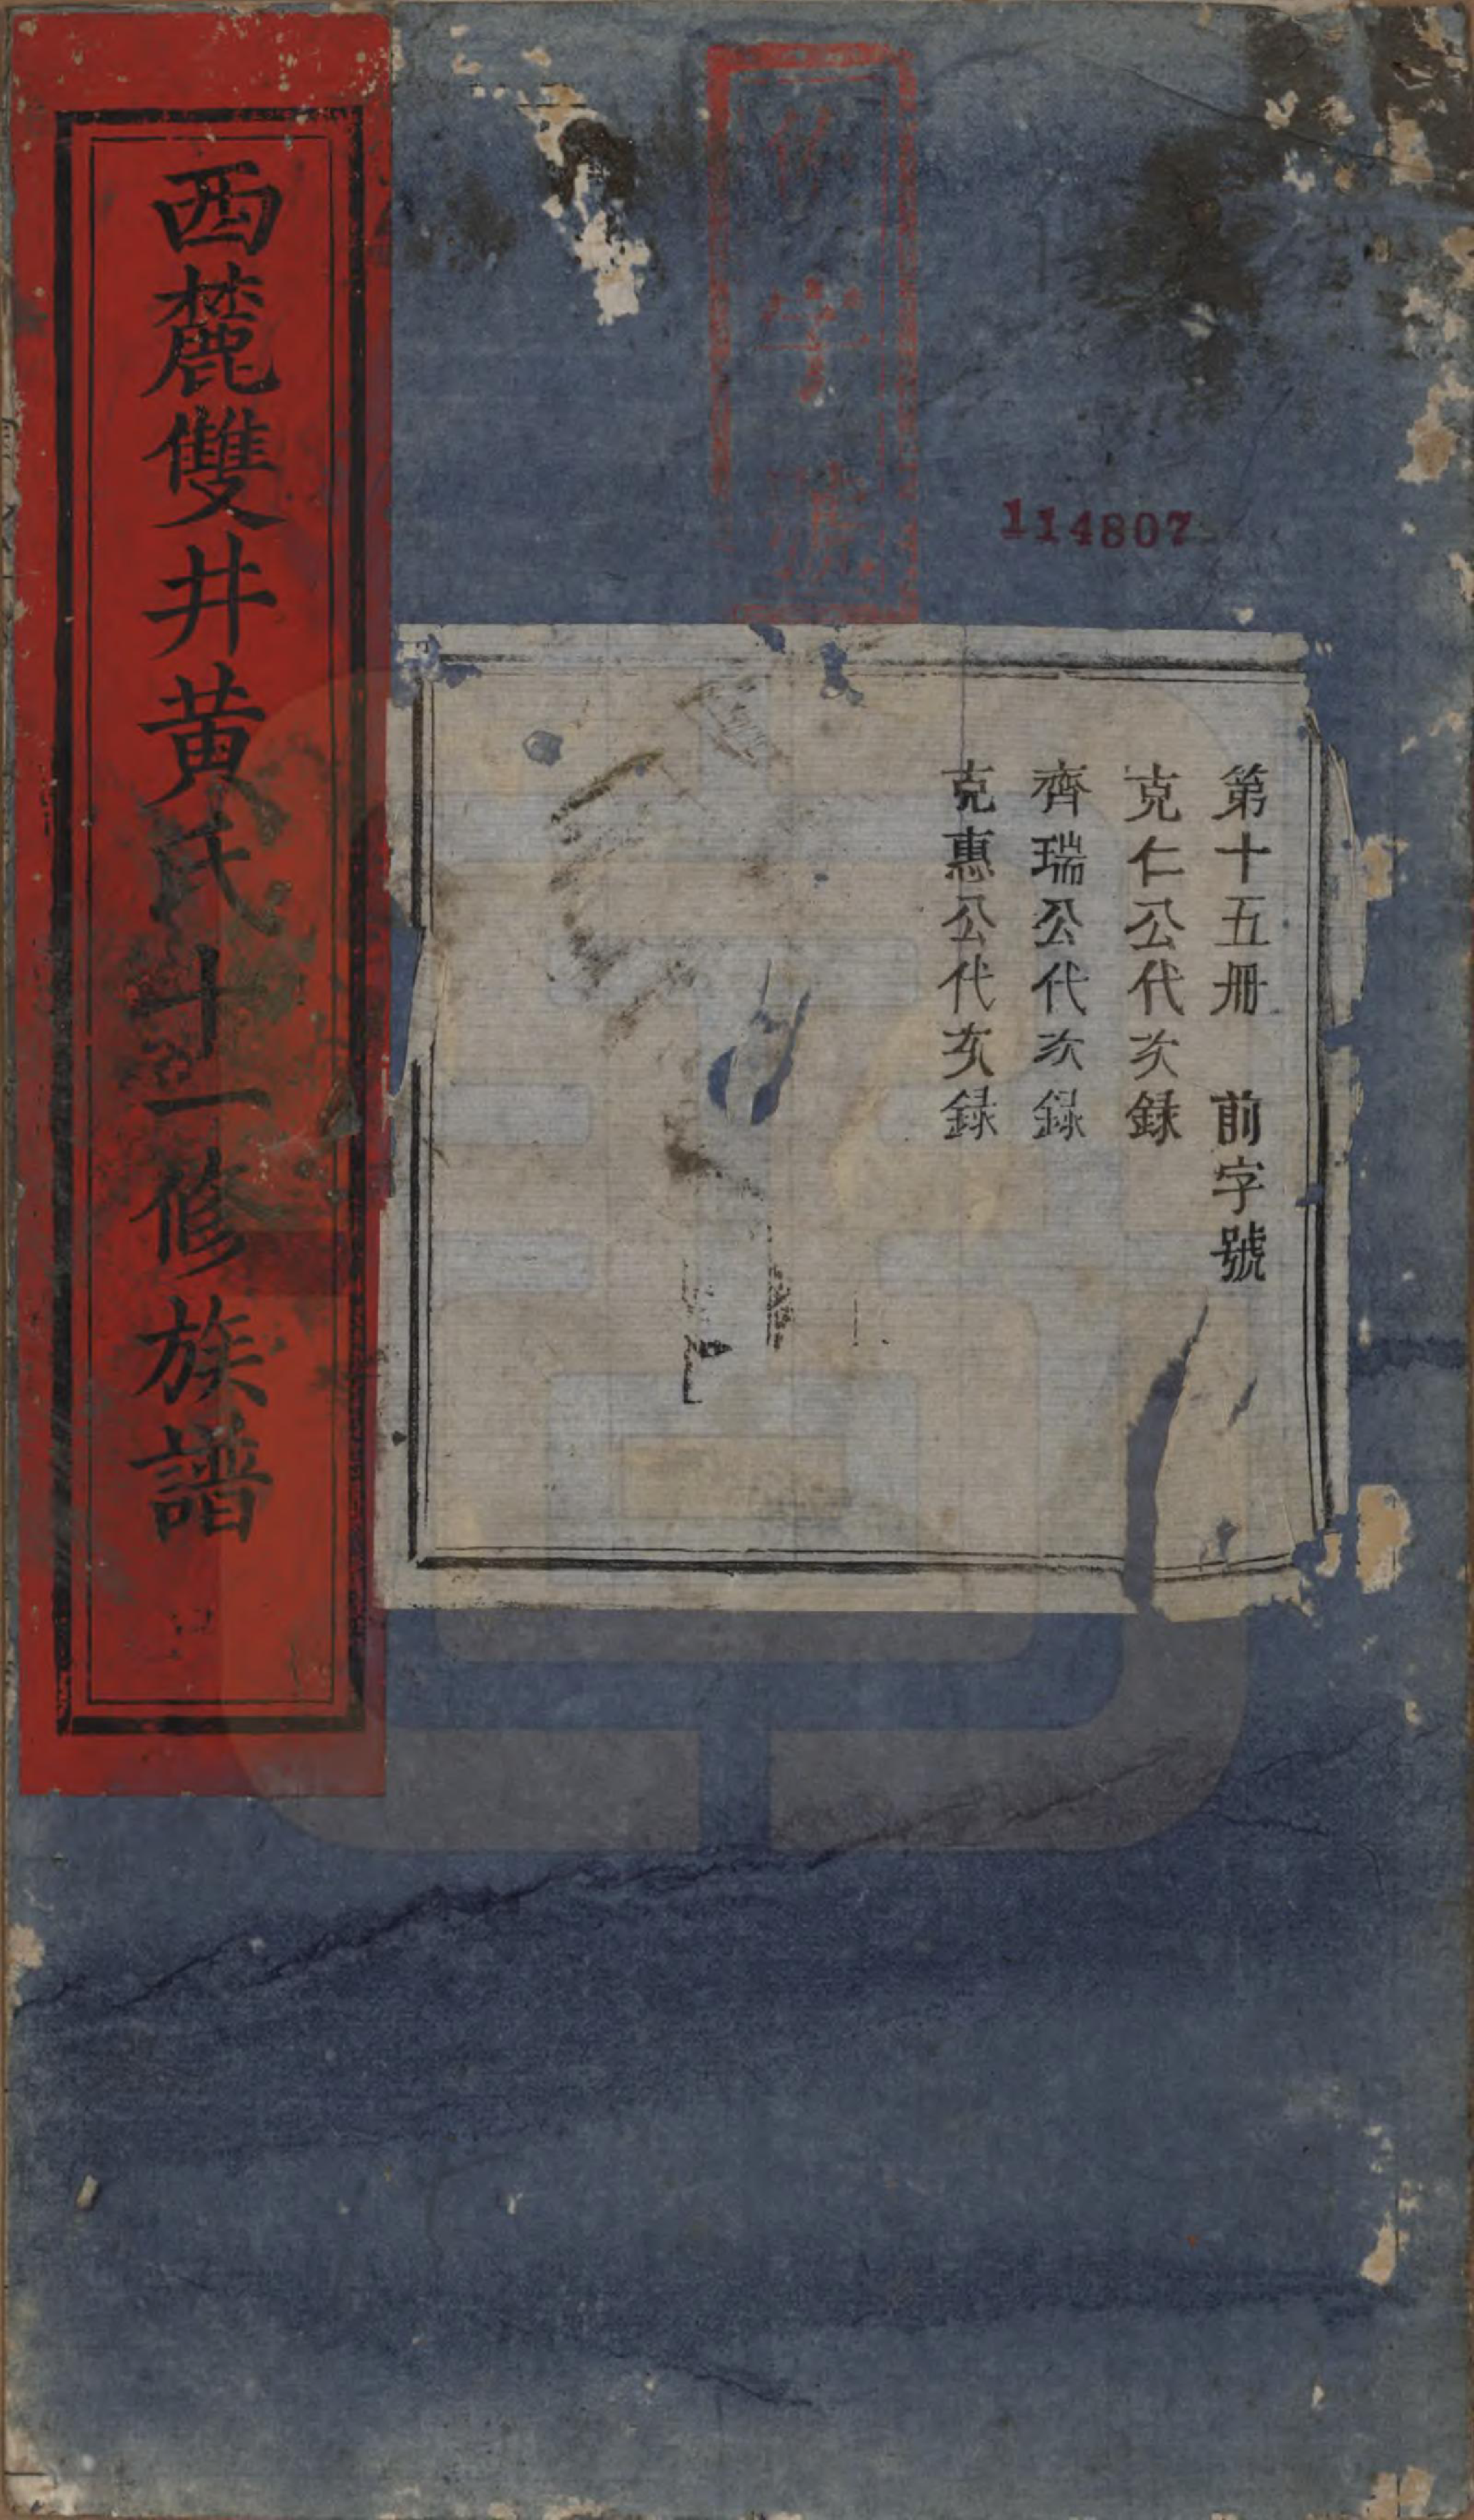 第十五冊 前字號
克仁公代次錄
齊瑞公代次錄
克惠公代次錄
西麓雙井黄氏十一修族譜
114807